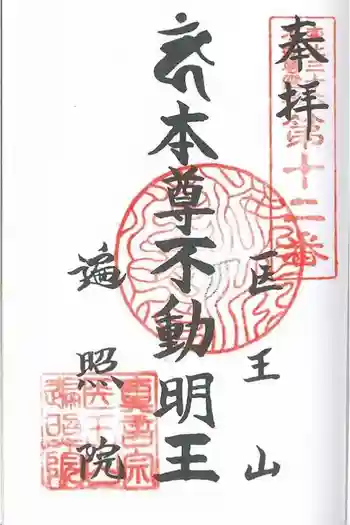 奉拝
第十二番
医王山
本尊不動明王
遍照院
真言宗
医王山
遍照院